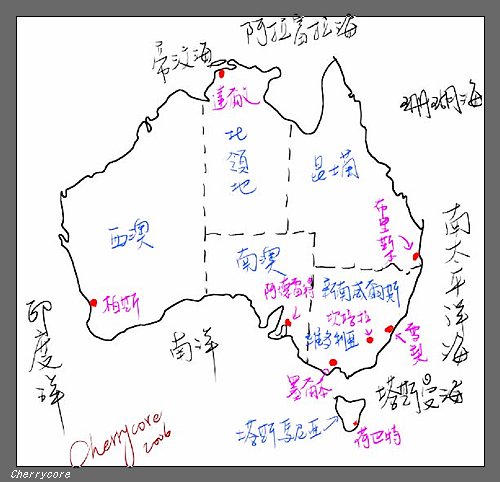 阿拉富拉海
帝汶海
珊瑚海
達爾文
北領地
昆士蘭
布里斯本
西澳
南澳
南太平洋海
阿德雷得
新南威爾斯
柏斯
坎培拉
維多利亞
雪梨
印度洋
南洋
墨爾本
塔斯曼海
塔斯馬尼亞
荷巴特
Cherrycore
2006
Cherrycore